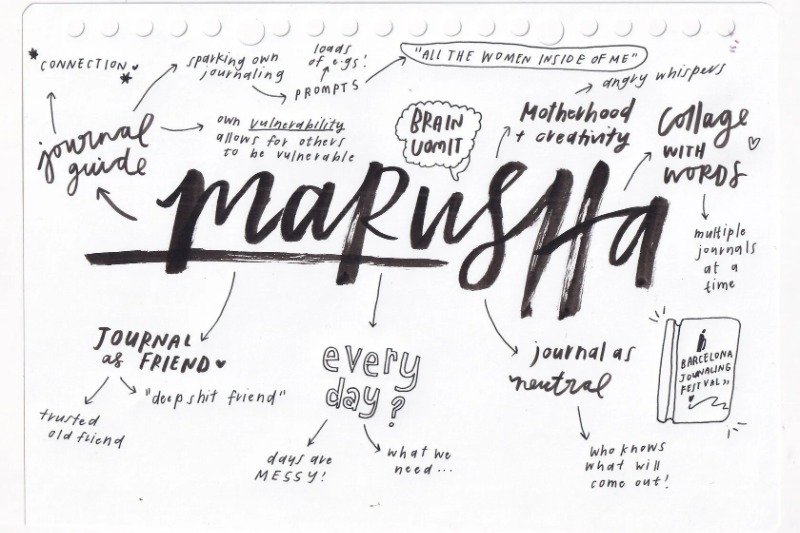 CONNECTION
sparking own
journaling
loads
of e.g's!
PROMPTS
"ALL THE WOMEN INSIDE OF ME"
angry whispers
journal
guide
own vulnerability
allows for others
to be vulnerable
BRAIN
VOMIT
Motherhood
+ creativity
Collage
WITH
WORDS
multiple
journals
at a
time
MARUSHA
JOURNAL
as FRIEND
"deep shit friend"
trusted
old friend
every
day?
days are
MESSY!
what we
need...
journal as
neutral
who knows
what will
come out!
BARCELONA
JOURNALING
FESTIVAL